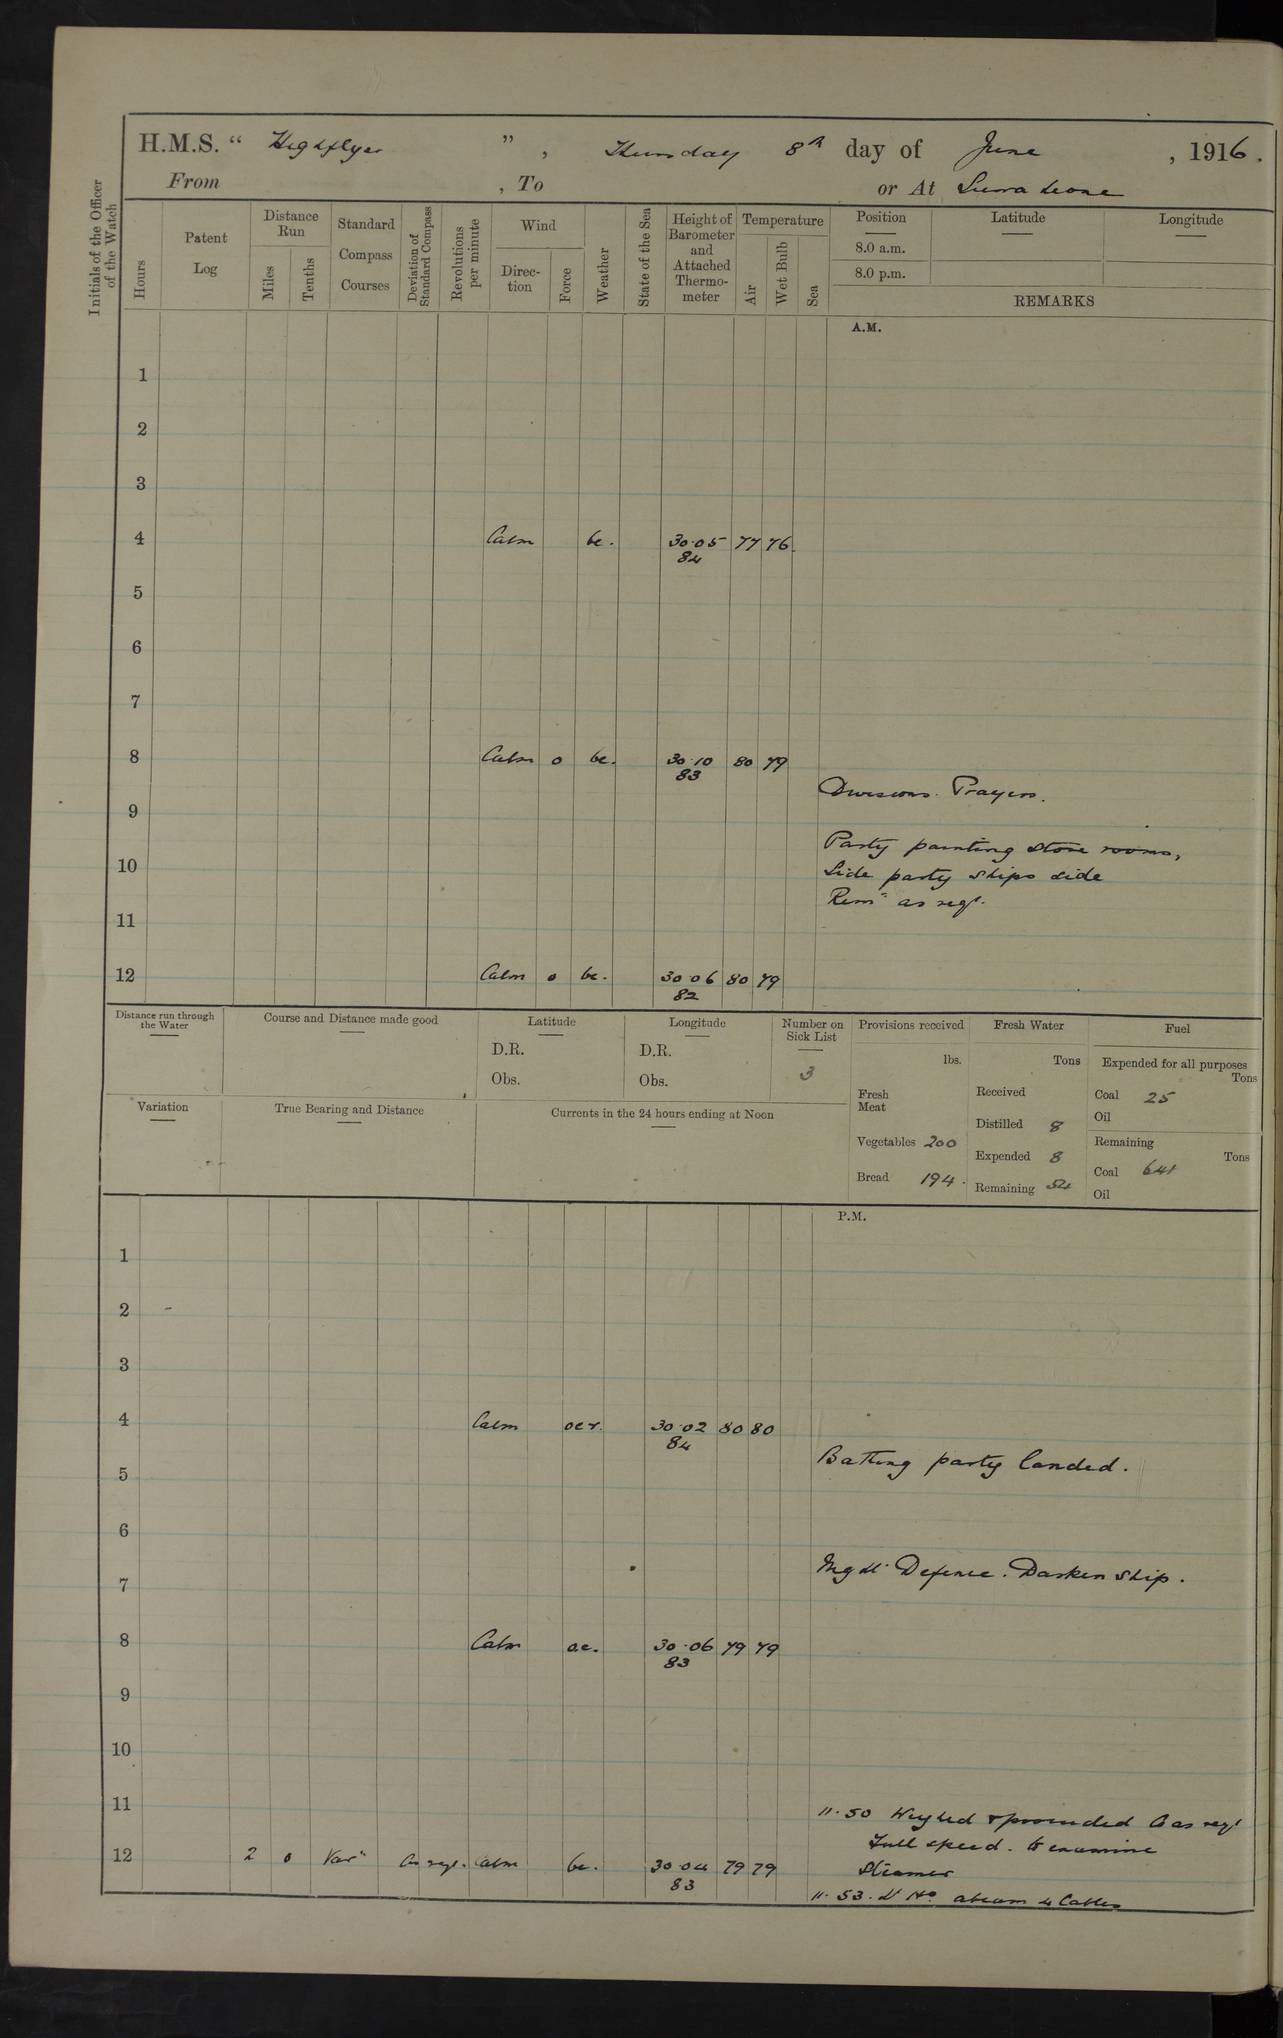 H.M.S. “ Highflyer ” , Thursday 8th day of June , 1916 .
From , To or At Sierra Leone
Initials of the Officer of the Watch
Hours
Patent Log
Distance Run
Miles
Tenths
Standard Compass Courses
Deviation of Standard Compass
Revolutions per minute
Wind
Direc-tion
Force
Weather
State of the Sea
Height of Barometer and Attached Thermo-meter
Temperature
Air
Wet Bulb
Sea
Position Latitude Longitude
8.0 a.m.
8.0 p.m.
REMARKS
A.M.
1
2
3
4 Calm bc. 30.05 77 76
84
5
6
7
8 Calm 0 bc. 30.10 80 79
83
Divisions. Prayers.
9
Party painting store rooms,
10
Side party ships side
Remr as reqd.
11
12 Calm 0 bc. 30.06 80 79
82
Distance run through the Water
Course and Distance made good
Latitude
D.R.
Obs.
Longitude
D.R.
Obs.
Number on Sick List
3
Provisions received
lbs.
Fresh Meat
Vegetables 200
Bread 194.
Fresh Water
Tons
Received
Distilled 8
Expended 8
Remaining 54
Fuel
Expended for all purposes
Tons
Coal 25
Oil
Remaining
Tons
Coal 641
Oil
Variation
True Bearing and Distance
Currents in the 24 hours ending at Noon
P.M.
1
2
3
4 Calm ocr. 30.02 80 80
84
Bathing party landed.
5
6
Night Defence. Darken ship.
7
8 Calm oc. 30.06 79 79
83
9
10
11
11.50 Weighed & proceeded Co as reqd
Full speed. to examine
12 2 0 Vars As reqd. Calm bc. 30.04 79 79
83
Steamer
11.53. Lt Ho. abeam 4 Cables